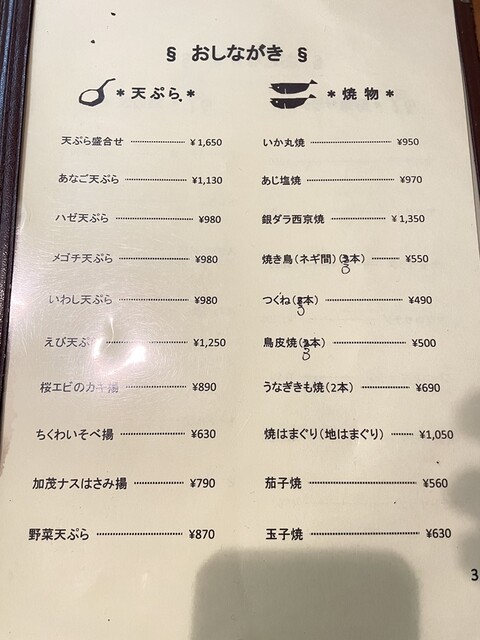 § おしながき §
＊天ぷら＊
天ぷら盛合せ ¥1,650
あなご天ぷら ¥1,130
ハゼ天ぷら ¥980
メゴチ天ぷら ¥980
いわし天ぷら ¥980
えび天ぷ ¥1,250
桜エビのかき揚 ¥890
ちくわいそべ揚 ¥630
加茂ナスはさみ揚 ¥790
野菜天ぷら ¥870
＊焼物＊
いか丸焼 ¥950
あじ塩焼 ¥970
銀ダラ西京焼 ¥1,350
焼き鳥(ネギ間)(3本) ¥550
つくね(3本) ¥490
鳥皮焼(3本) ¥500
うなぎきも焼(2本) ¥690
焼はまぐり(地はまぐり) ¥1,050
茄子焼 ¥560
玉子焼 ¥630
3